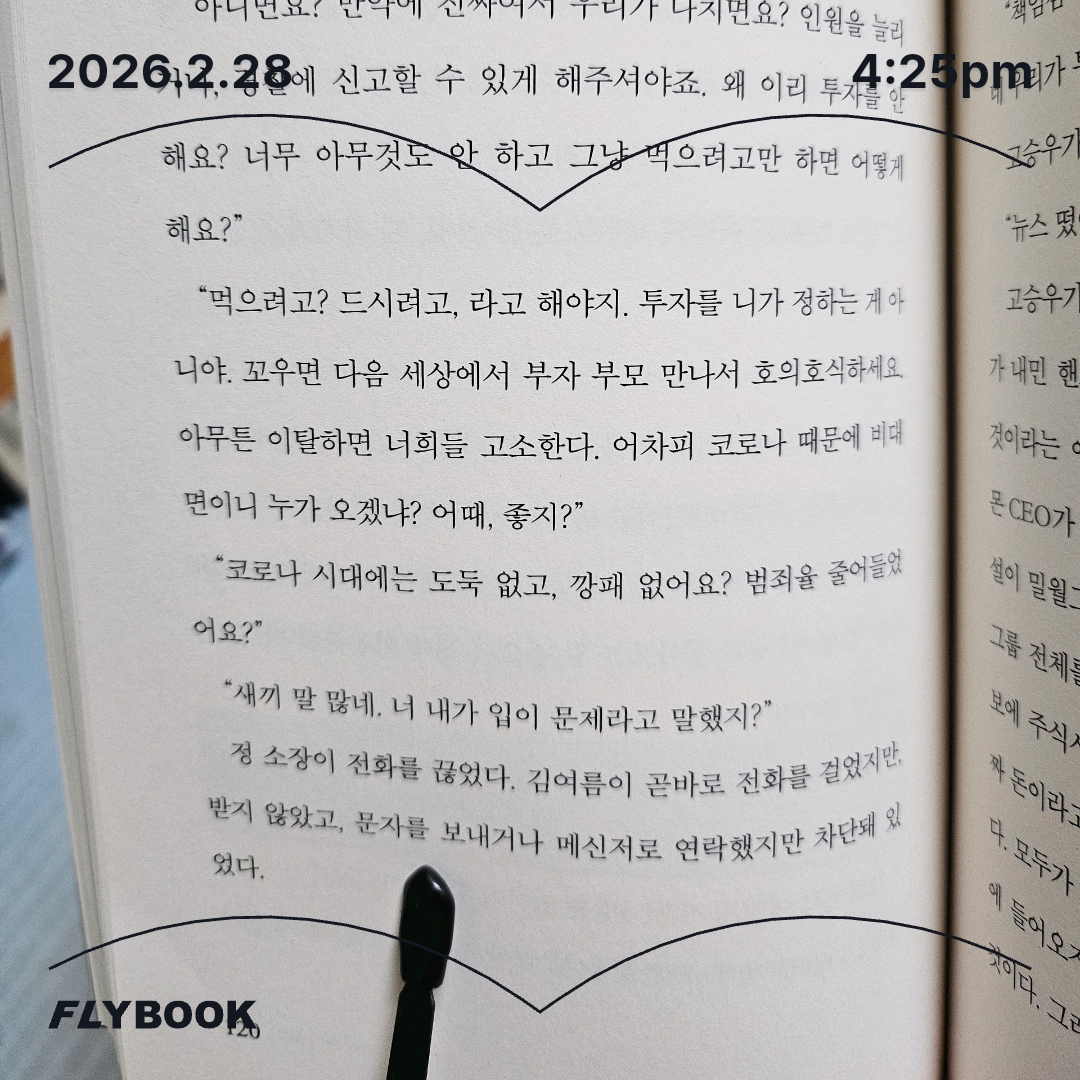 2026.2.28
4:25pm
아니면요? 만약에 진짜여서 우리가 다치면요? 인원을 늘리
거나, 경찰에 신고할 수 있게 해주셔야죠. 왜 이리 투자를 안
해요? 너무 아무것도 안 하고 그냥 먹으려고만 하면 어떻게
해요?”
“먹으려고? 드시려고, 라고 해야지. 투자를 니가 정하는 게 아
니야. 꼬우면 다음 세상에서 부자 부모 만나서 호의호식하세요.
아무튼 이탈하면 너희들 고소한다. 어차피 코로나 때문에 비대
면이니 누가 오겠냐? 어때, 좋지?”
“코로나 시대에는 도둑 없고, 깡패 없어요? 범죄율 줄어들었
어요?”
“새끼 말 많네. 너 내가 입이 문제라고 말했지?”
정 소장이 전화를 끊었다. 김여름이 곧바로 전화를 걸었지만,
받지 않았고, 문자를 보내거나 메신저로 연락했지만 차단돼 있
었다.
FLYBOOK
120
“책임
고승우가
“뉴스 떴
고승우가
가 내민 핸
것이라는
몬 CEO가
설이 밀월
그룹 전체를
보에 주식
짜 돈이라고
다. 모두가
에 들어오
것이다. 그